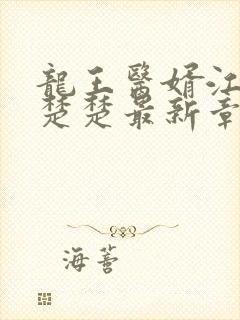 龍王醫婿江
楚楚最新章
海薈